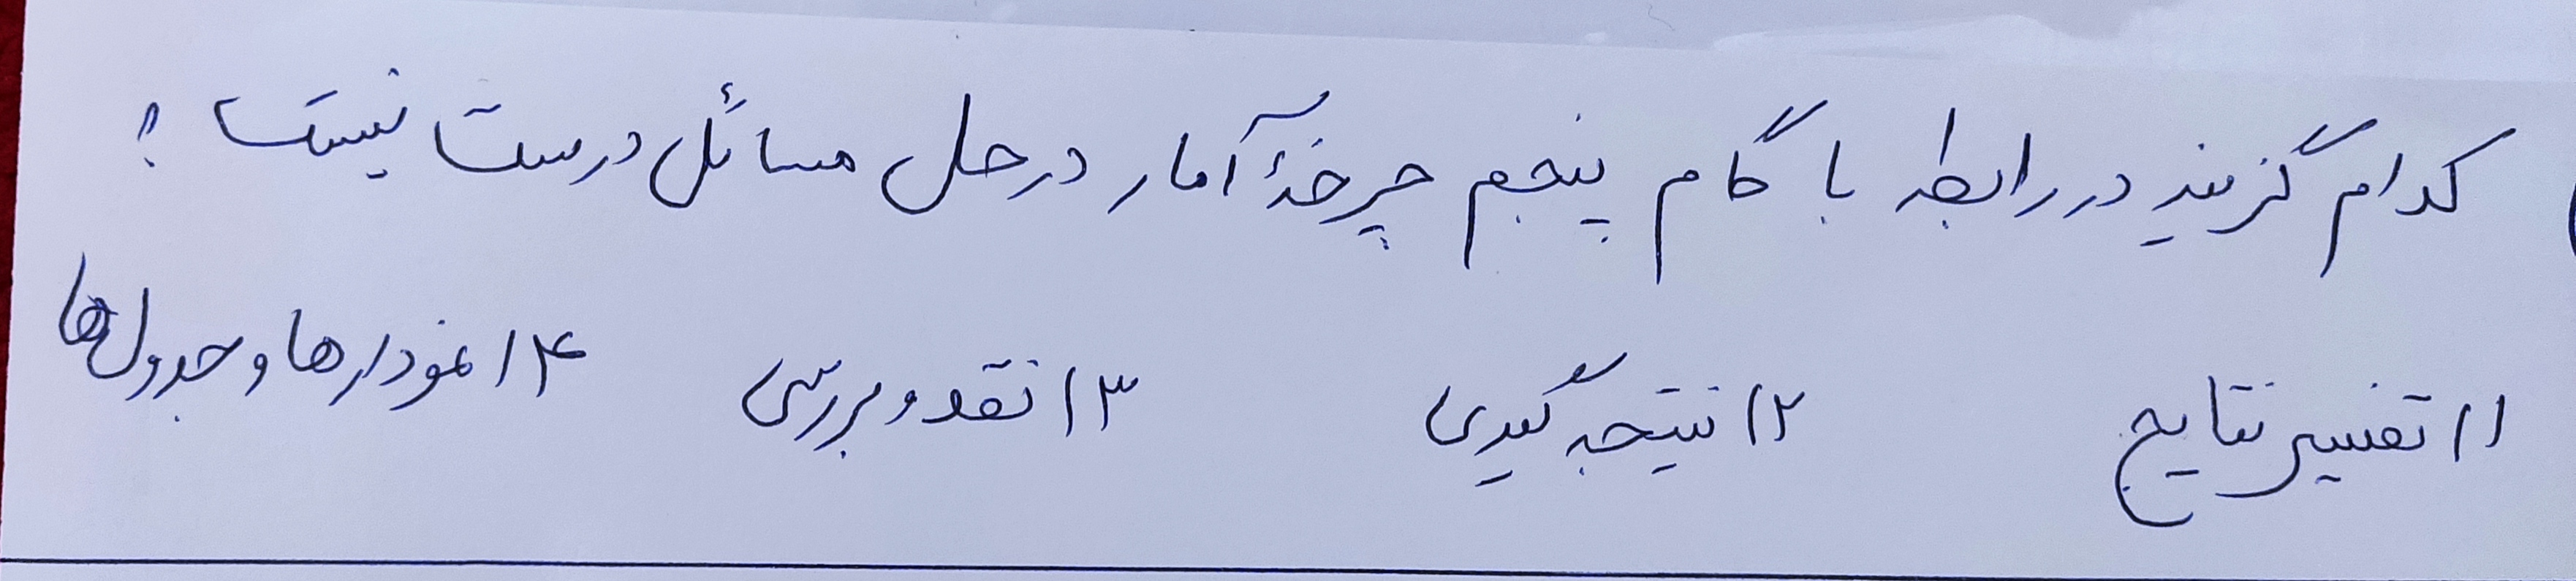 کدام گزینه در رابطه با گام پنجم چرخهٔ آمار در حل مسائل درست نیست ؟
۱) تفسیر نتایج ۲) نتیجه گیری ۳) نقد و بررسی ۴) نمودارها و جدول‌ها